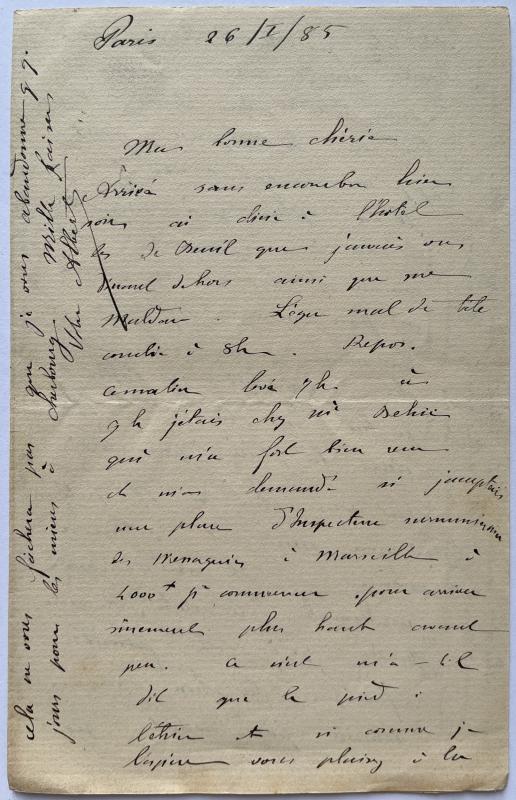 Paris 26/I/85
Ma bonne chérie
Arrivé sans encombre hier
soir ai diné à l'hotel
de deuil que j'avais
dehors ainsi que me
Léger mal de tête
couché à 8h. Repos.
ce matin levé 7h. à
9h j'étais chez Mr
qui m'a fort bien reçu
et m'a demandé si j'acceptais
une place d'Inspecteur
des Messageries à Marseille à
4000 f pr commencer pour arriver
sûrement plus haut avant
peu. Ce n'est m'a-t-il
dit que le pied à
l'étrier et si comme je
l'espère vous plaisez à la
cela ne vous fâchera pas que je vous abandonne qq.
jours pour les miens à Cherbourg Mille baisers
Albert